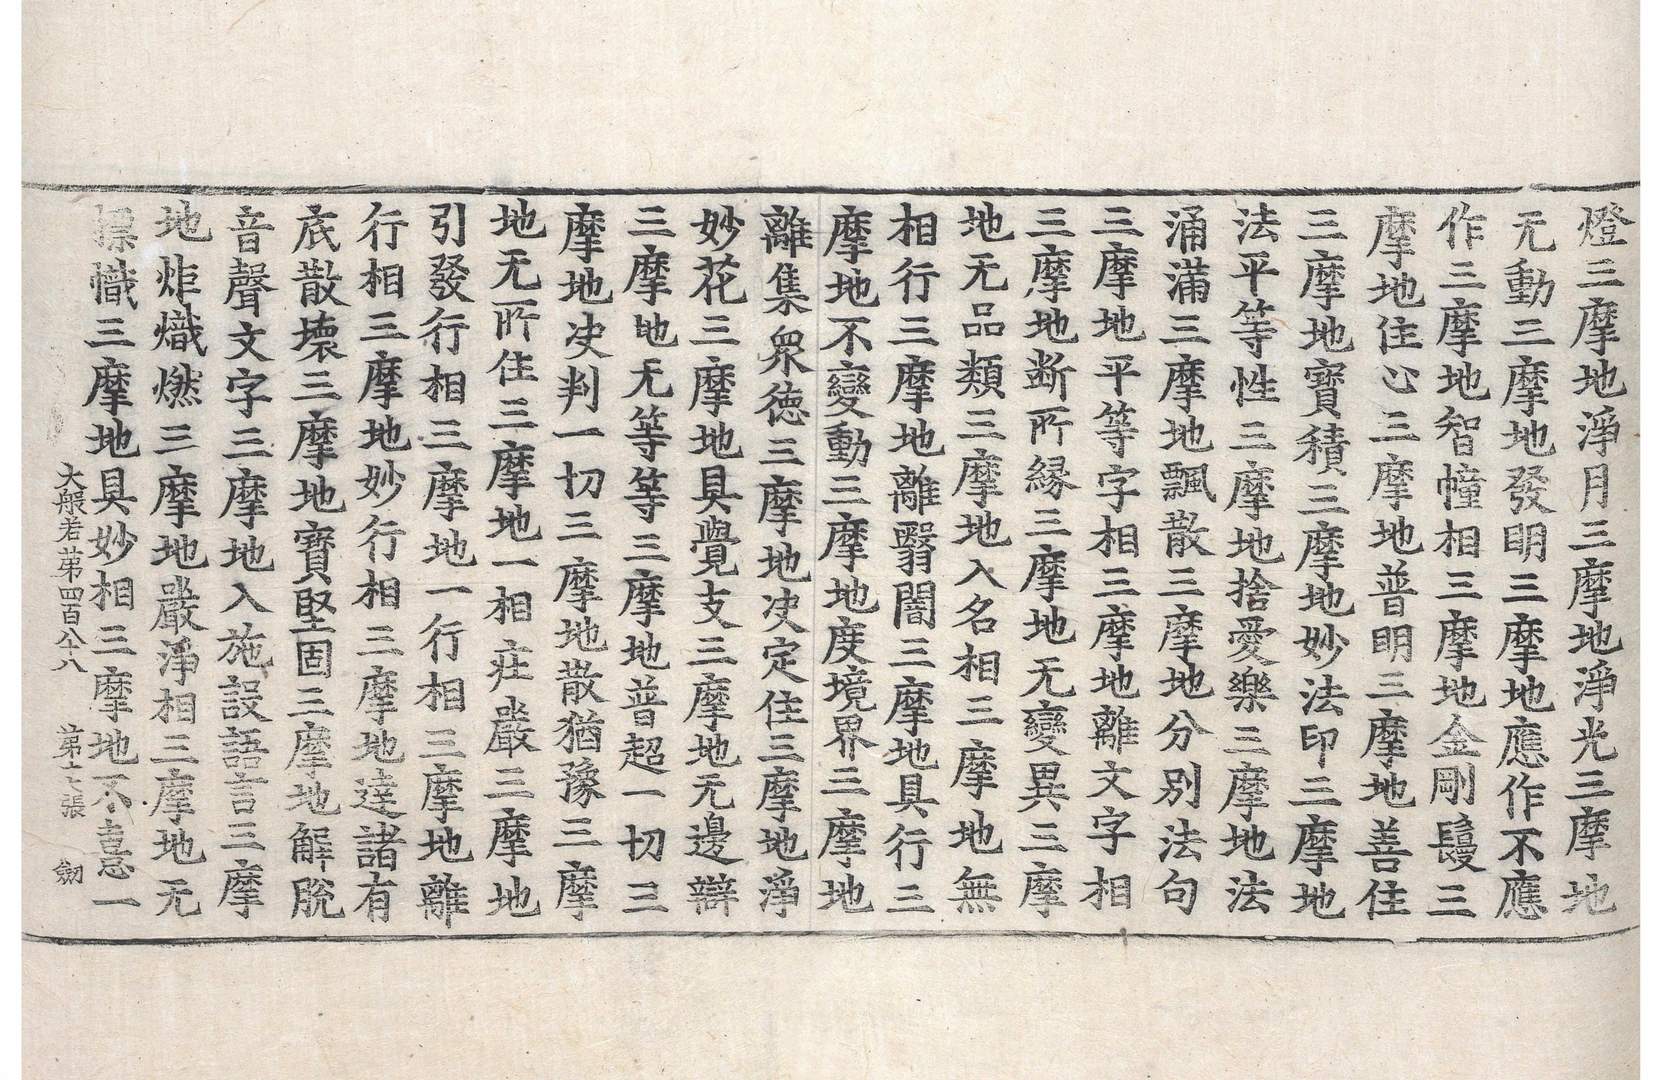 燈三摩地淨月三摩地淨光三摩地
无動三摩地發明三摩地應作不應
作三摩地智幢相三摩地金剛鬘三
摩地住心三摩地普明三摩地善住
三摩地寶積三摩地妙法印三摩地
法平等性三摩地捨愛樂三摩地法
涌滿三摩地飄散三摩地分別法句
三摩地平等字相三摩地離文字相
三摩地断所緣三摩地无變異三摩
地无品類三摩地入名相三摩地無
相行三摩地離翳闇三摩地具行三
摩地不變動三摩地度境界三摩地
離集衆德三摩地決定住三摩地淨
妙花三摩地具覺支三摩地无邊辯
三摩地无等等三摩地普超一切三
摩地决判一切三摩地散猶豫三摩
地无所住三摩地一相莊嚴三摩地
引發行相三摩地一行相三摩地離
行相三摩地妙行相三摩地達諸有
底散壞三摩地寶堅固三摩地解脫
音聲文字三摩地入施設語言三摩
地炬熾燃三摩地嚴淨相三摩地无
摽幟三摩地具妙相三摩地不憙一
大般若第四百八十八 第十六張 劒